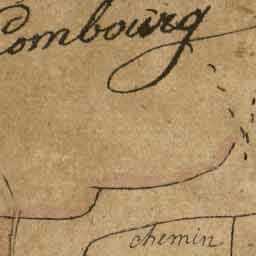 Combourg
chemin